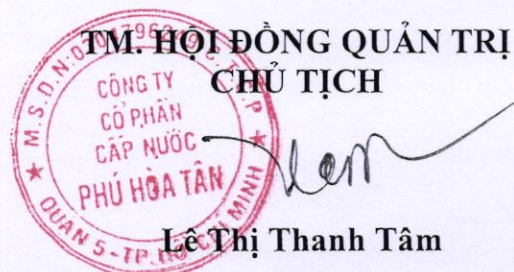 TM. HỘI ĐỒNG QUẢN TRỊ
CHỦ TỊCH
CÔNG TY
CỔ PHẦN
CẤP NƯỚC
PHÚ HÒA TÂN
QUẬN 5 - TP. HỒ CHÍ MINH
Lê Thị Thanh Tâm